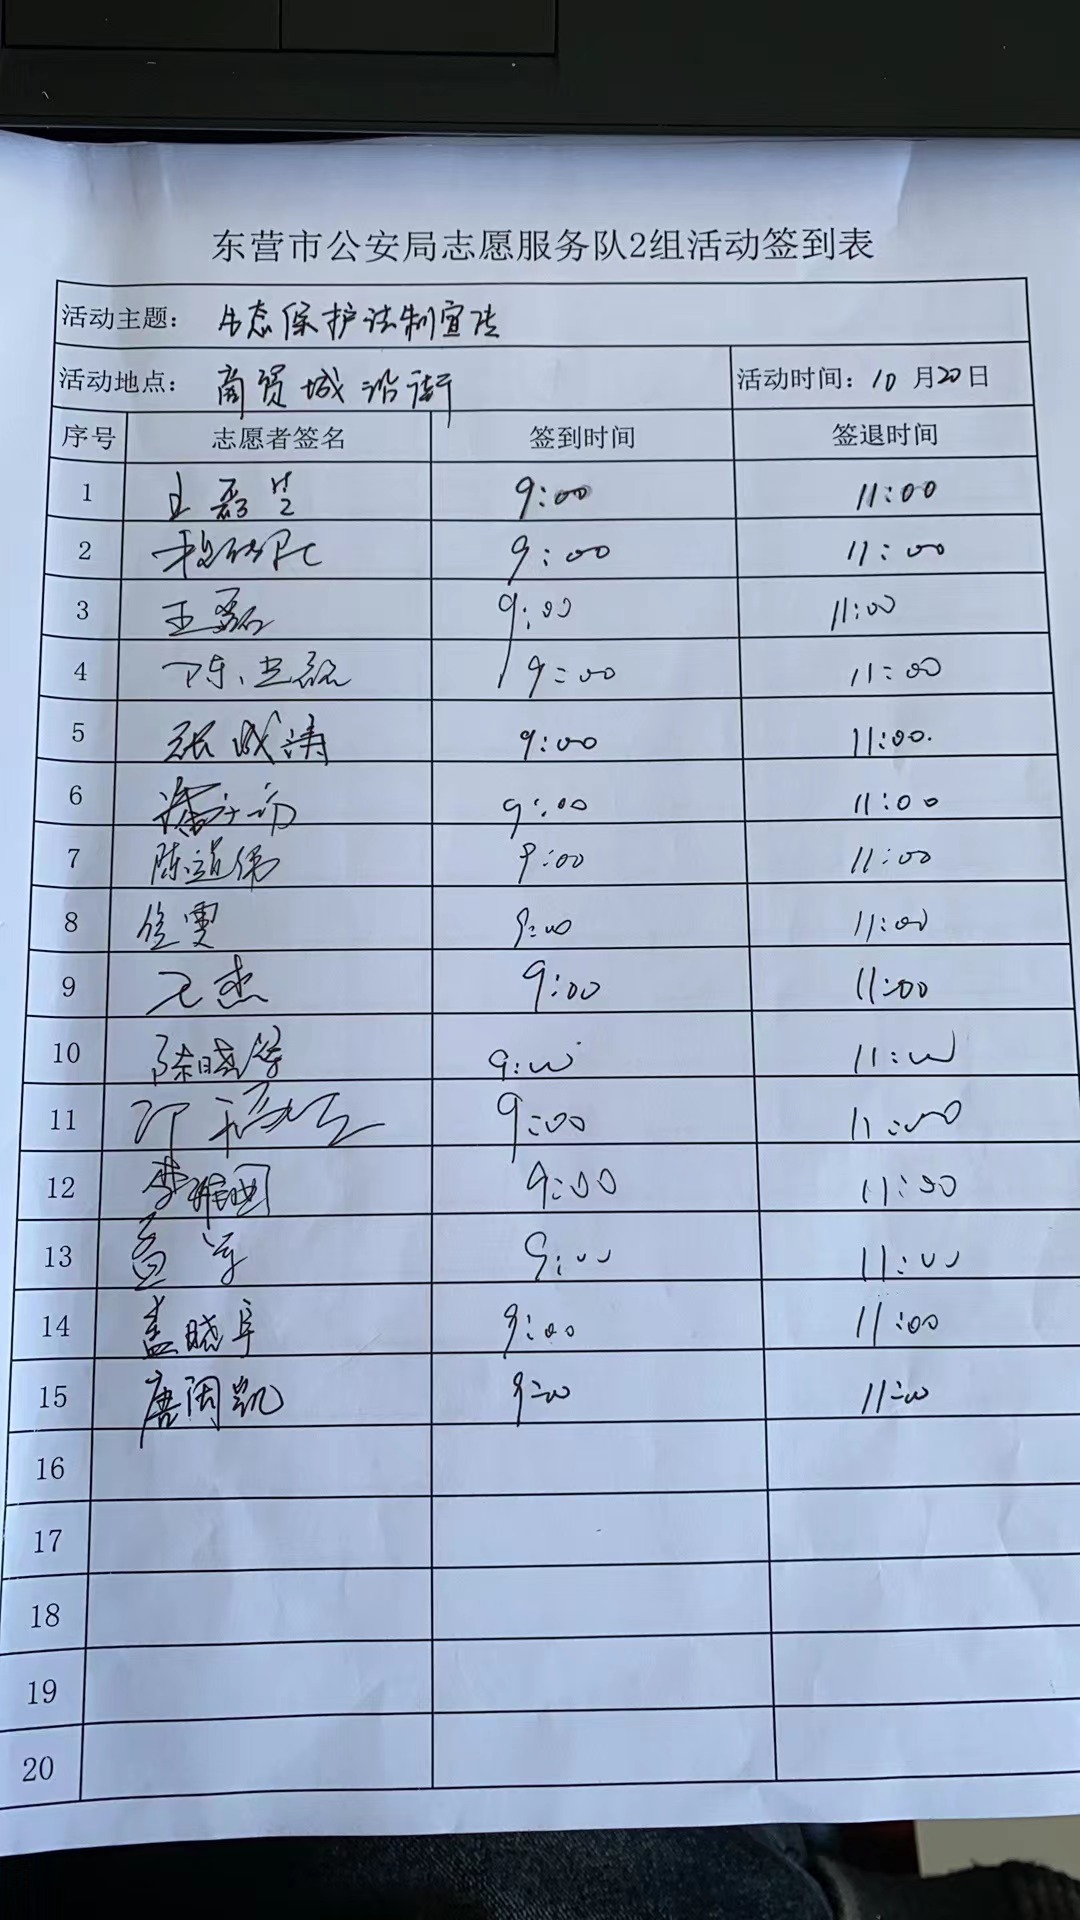 东营市公安局志愿服务队2组活动签到表
活动主题： 生态保护法制宣传
活动地点： 商贸城沿街 活动时间：10月20日
序号 志愿者签名 签到时间 签退时间
1 9:00 11:00
2 9:00 11:00
3 王磊 9:00 11:00
4 陈 9:00 11:00
5 张成涛 9:00 11:00
6 9:00 11:00
7 陈道伟 9:00 11:00
8 9:00 11:00
9 杰 9:00 11:00
10 陈晓 9:00 11:00
11 9:00 11:00
12 李 9:00 11:00
13 9:00 11:00
14 孟晓 9:00 11:00
15 唐闵凯 9:00 11:00
16
17
18
19
20